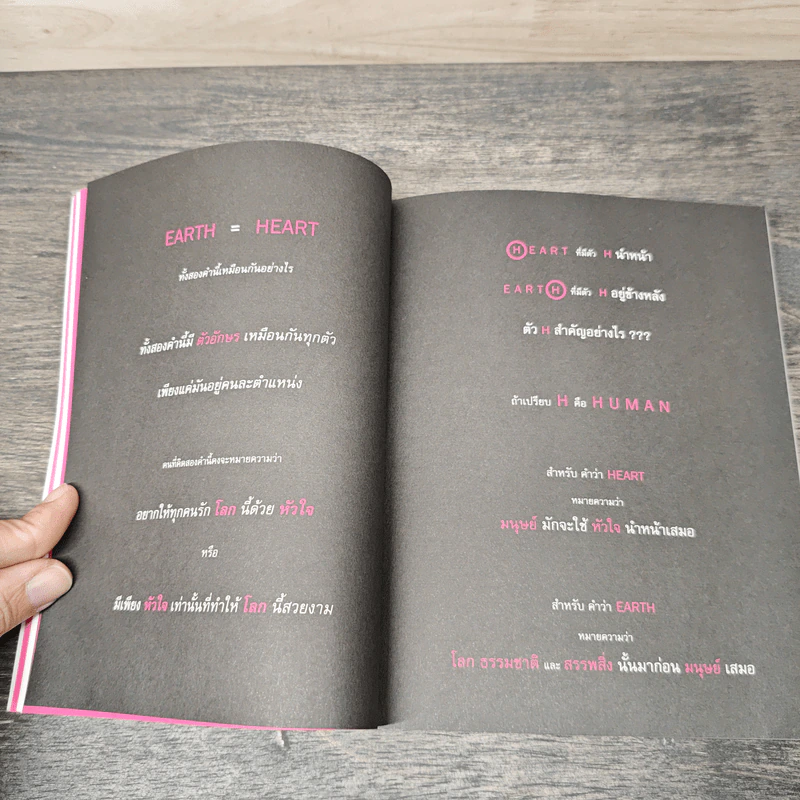 EARTH = HEART
ทั้งสองคำนี้เหมือนกันอย่างไร
ทั้งสองคำนี้มี ตัวอักษร เหมือนกันทุกตัว
เพียงแค่มันอยู่คนละตำแหน่ง
คนที่คิดสองคำนี้คงจะหมายความว่า
อยากให้ทุกคนรัก โลก นี้ด้วย หัวใจ
หรือ
มีเพียง หัวใจ เท่านั้นที่ทำให้ โลก นี้สวยงาม
HEART ที่มีตัว H นำหน้า
EARTH ที่มีตัว H อยู่ข้างหลัง
ตัว H สำคัญอย่างไร ???
ถ้าเปรียบ H คือ HUMAN
สำหรับ คำว่า HEART
หมายความว่า
มนุษย์ มักจะใช้ หัวใจ นำหน้าเสมอ
สำหรับ คำว่า EARTH
หมายความว่า
โลก ธรรมชาติ และ สรรพสิ่ง นั้นมาก่อน มนุษย์ เสมอ